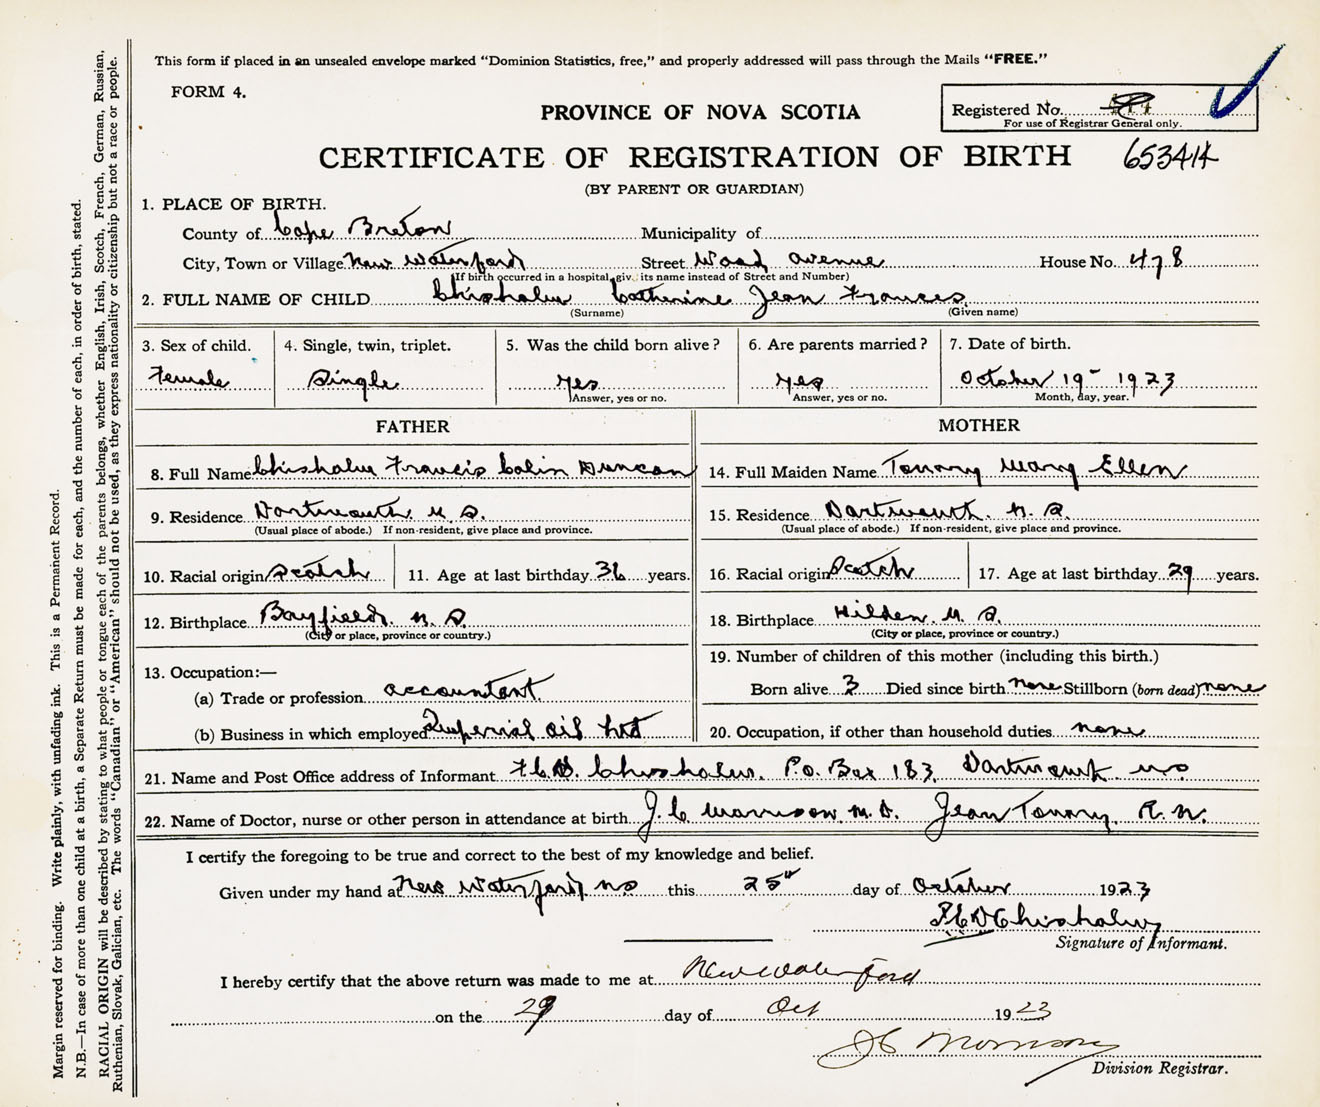 This form if placed in an unsealed envelope marked "Dominion Statistics, free," and properly addressed will pass through the Mails "FREE."
FORM 4.
PROVINCE OF NOVA SCOTIA
Registered No.
For use of Registrar General only.
CERTIFICATE OF REGISTRATION OF BIRTH 653414
(BY PARENT OR GUARDIAN)
1. PLACE OF BIRTH.
County of Cape Breton Municipality of
City, Town or Village New Waterford Street Wood Avenue House No. 478
(If birth occurred in a hospital, give its name instead of Street and Number)
2. FULL NAME OF CHILD Chisholm Catherine Jean Frances
(Surname) (Given name)
3. Sex of child. 4. Single, twin, triplet. 5. Was the child born alive? 6. Are parents married? 7. Date of birth.
Female Single Yes Yes October 19 1923
Answer, yes or no. Answer, yes or no. Month, day, year.
FATHER MOTHER
8. Full Name Chisholm Francis Colin Duncan 14. Full Maiden Name Tonary Mary Ellen
9. Residence Dartmouth N.S. 15. Residence Dartmouth. N.S.
(Usual place of abode.) If non-resident, give place and province. (Usual place of abode.) If non-resident, give place and province.
10. Racial origin Scotch 11. Age at last birthday 36 years. 16. Racial origin Scotch 17. Age at last birthday 29 years.
12. Birthplace Bayfield. N.S. 18. Birthplace Hilden. N.S.
(City or place, province or country.) (City or place, province or country.)
13. Occupation:— 19. Number of children of this mother (including this birth.)
(a) Trade or profession accountant. Born alive 3 Died since birth none Stillborn (born dead) none
(b) Business in which employed Imperial Oil Ltd 20. Occupation, if other than household duties none
21. Name and Post Office address of Informant F.C.D. Chisholm. P.O. Box 183, Dartmouth NS
22. Name of Doctor, nurse or other person in attendance at birth J.C. Morrison M.D. Jean Tonary. R.N.
I certify the foregoing to be true and correct to the best of my knowledge and belief.
Given under my hand at New Waterford NS this 25th day of October 1923
F.C.D Chisholm
Signature of Informant.
I hereby certify that the above return was made to me at New Waterford
on the 29 day of Oct 1923
JC Morrison
Division Registrar.
Margin reserved for binding. Write plainly, with unfading ink. This is a Permanent Record.
N.B.—In case of more than one child at a birth, a Separate Return must be made for each, and the number of each, in order of birth, stated.
RACIAL ORIGIN will be described by stating to what people or tongue each of the parents belongs, whether English, Irish, Scotch, French, German, Russian,
Ruthenian, Slovak, Galician, etc. The words "Canadian" or "American" should not be used, as they express nationality or citizenship but not a race or people.